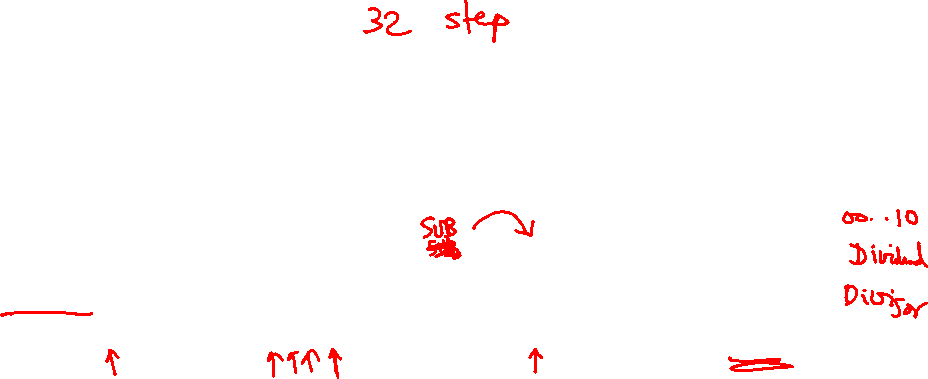 32 step
SUB
00...10
Dividend
Divisor